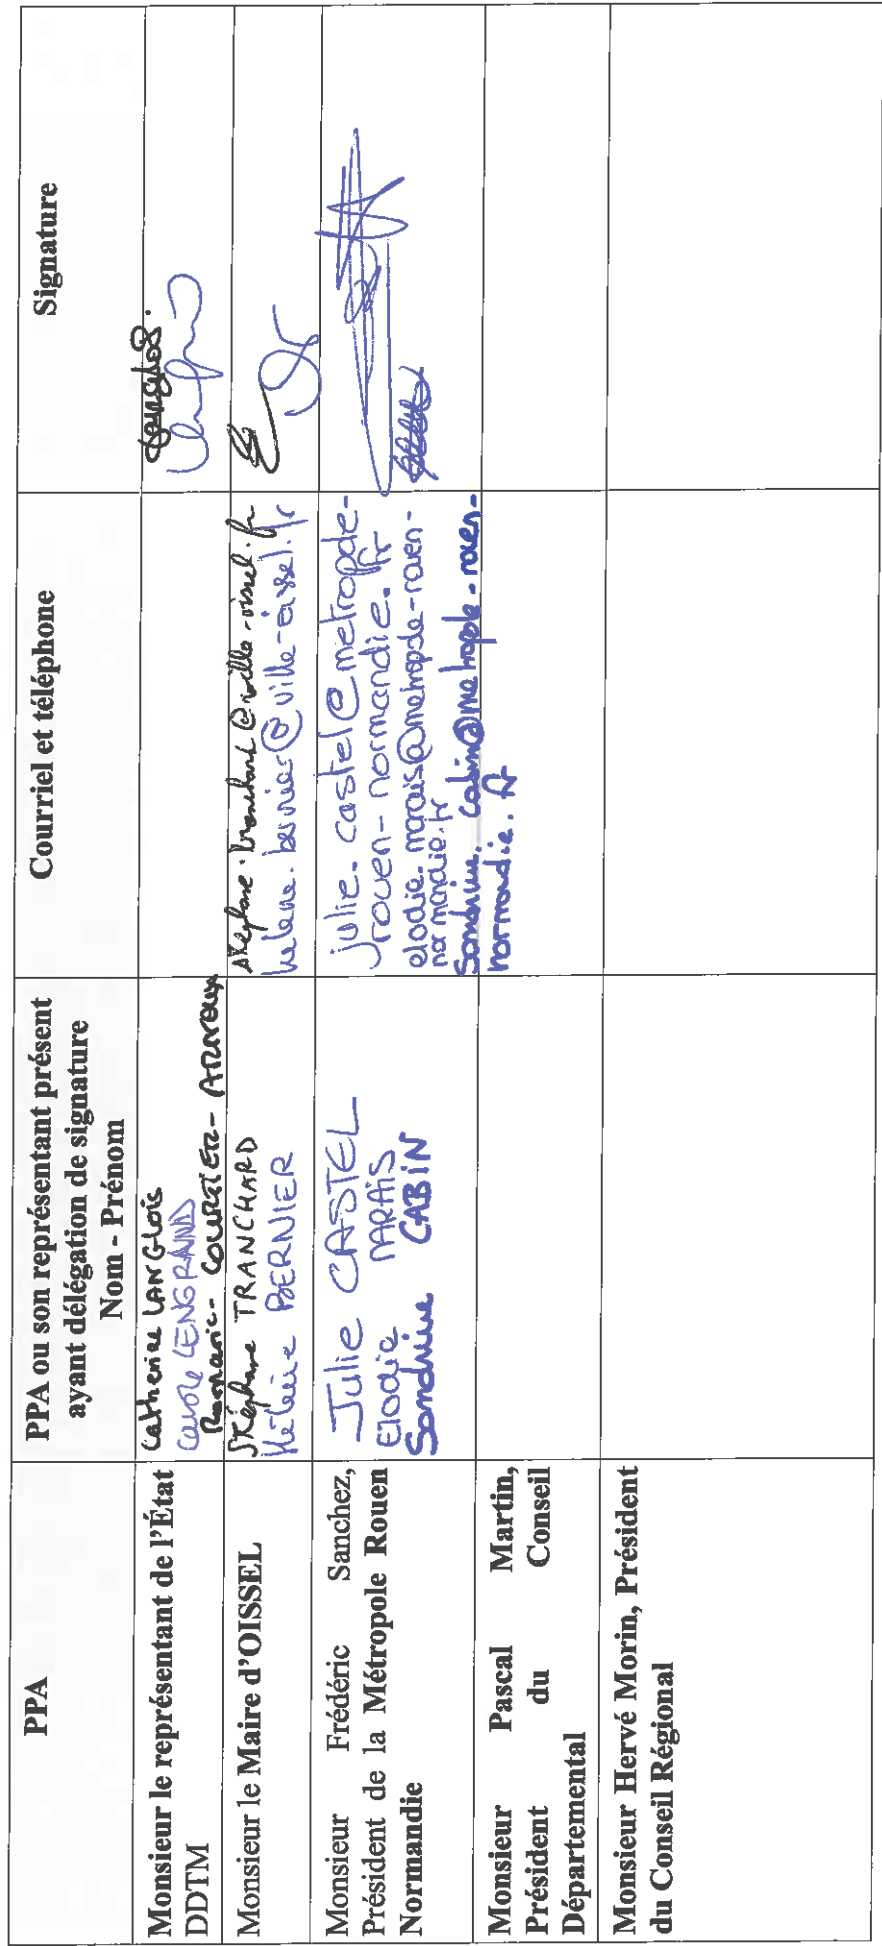 PPA
PPA ou son représentant présent
ayant délégation de signature
Nom - Prénom
Courriel et téléphone
Signature
Monsieur le représentant de l'État
DDTM
Catherine LANGLOIS
Carole LENGRAND
Romaric - COURTIER - ARNOUX
Langlois.
Monsieur le Maire d'OISSEL
Stéphane TRANCHARD
Hélène BERNIER
stephane.tranchard@ville-oissel.fr
helene.bernier@ville-oissel.fr
Monsieur Frédéric Sanchez,
Président de la Métropole Rouen
Normandie
Julie CASTEL
Elodie MARAIS
Sandrine CABIN
julie.castel@metropole-
rouen-normandie.fr
elodie.marais@metropole-rouen-
normandie.fr
Sandrine.cabin@metropole-rouen-
normandie.fr
Monsieur Pascal Martin,
Président du Conseil
Départemental
Monsieur Hervé Morin, Président
du Conseil Régional